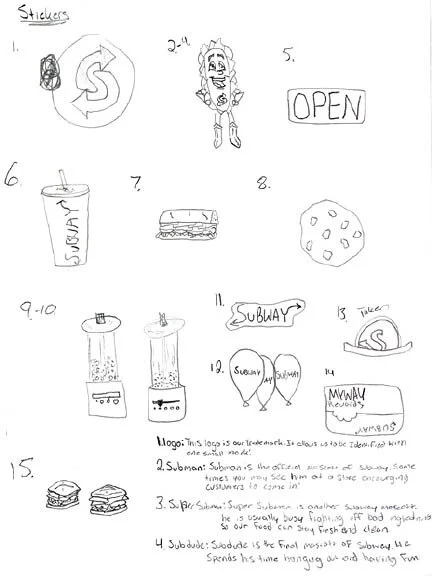 Stickers
1.
2-4
5.
OPEN
6
SUBWAY
7.
8.
9-10
11.
SUBWAY
12.
SUBWAY
SUBWAY
13. Token
S
14
MYWAY
Rewards
SUBWAY
1. Logo: This logo is our trademark. It allows us to be identified with
one small mark!
2. Subman: Subman is the official mascot of subway. Some
times you may see him at a store encouraging
customers to come in!
3. Super Subman: Super Subman is another subway mascot.
he is usually busy fighting off bad ingredients
so our food can stay fresh and clean.
4 Subdude: Subdude is the final mascot of subway. He
spends his time hanging out and having fun
15.